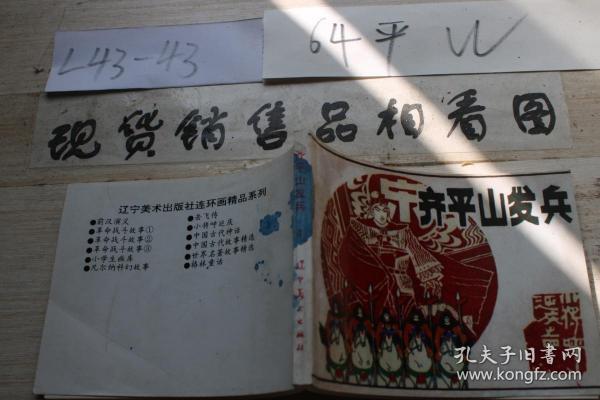 L43-43
64平 W
现货销售品相看图
辽宁美术出版社连环画精品系列
●前汉演义
●革命战斗故事①
●革命战斗故事②
●革命战斗故事③
●小学生画库
●凡尔纳科幻故事
●岳飞传
●小将呼延庆
●中国古代神话
●中国古代故事精选
●世界名著故事精选
●格林童话
平山发兵
辽宁美术出版社
齐平山发兵
小将呼延庆
孔夫子旧书网
www.kongfz.com